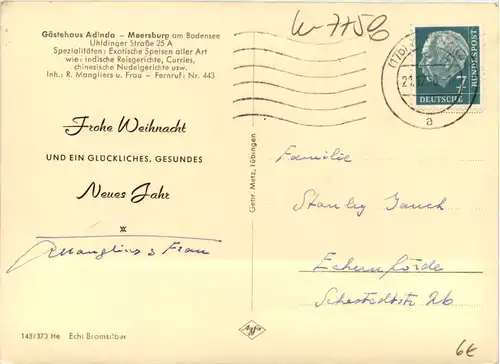 Gästehaus Adinda - Meersburg am Bodensee
Uhldinger Straße 25 A
Spezialitäten: Exotische Speisen aller Art
wie: indische Reisgerichte, Curries,
chinesische Nudelgerichte usw.
Inh.: R. Mangliers u. Frau - Fernruf: Nr. 443
Frohe Weihnacht
UND EIN GLÜCKLICHES, GESUNDES
Neues Jahr
Mangliers u Frau
148/373 He Echt Bromsilber
Gebr. Metz, Tübingen
Agfa
W-7759
(17b)
a
7
DEUTSCHE
BUNDESPOST
Familie
Stanley Jauch
Eckernförde
6€